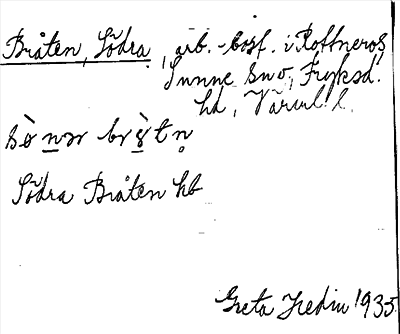 Bråten, Södra, arb.-bost. i Rottneros,
Sunne sn o, Fryksd.
hd, Värml. l.
sö̀nər brɷ̀tn̥
Södra Bråten hb
Greta Hedin 1935